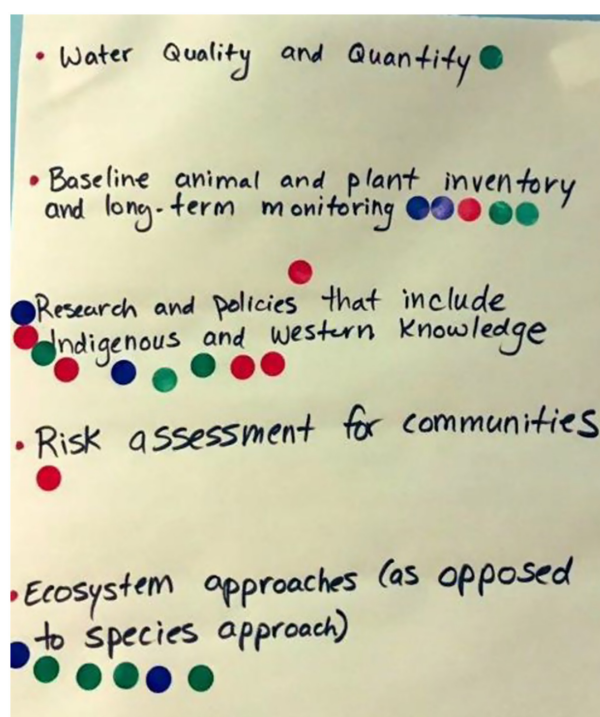 • Water Quality and Quantity
• Baseline animal and plant inventory
and long-term monitoring
Research and policies that include
Indigenous and Western Knowledge
• Risk assessment for communities
• Ecosystem approaches (as opposed
to species approach)